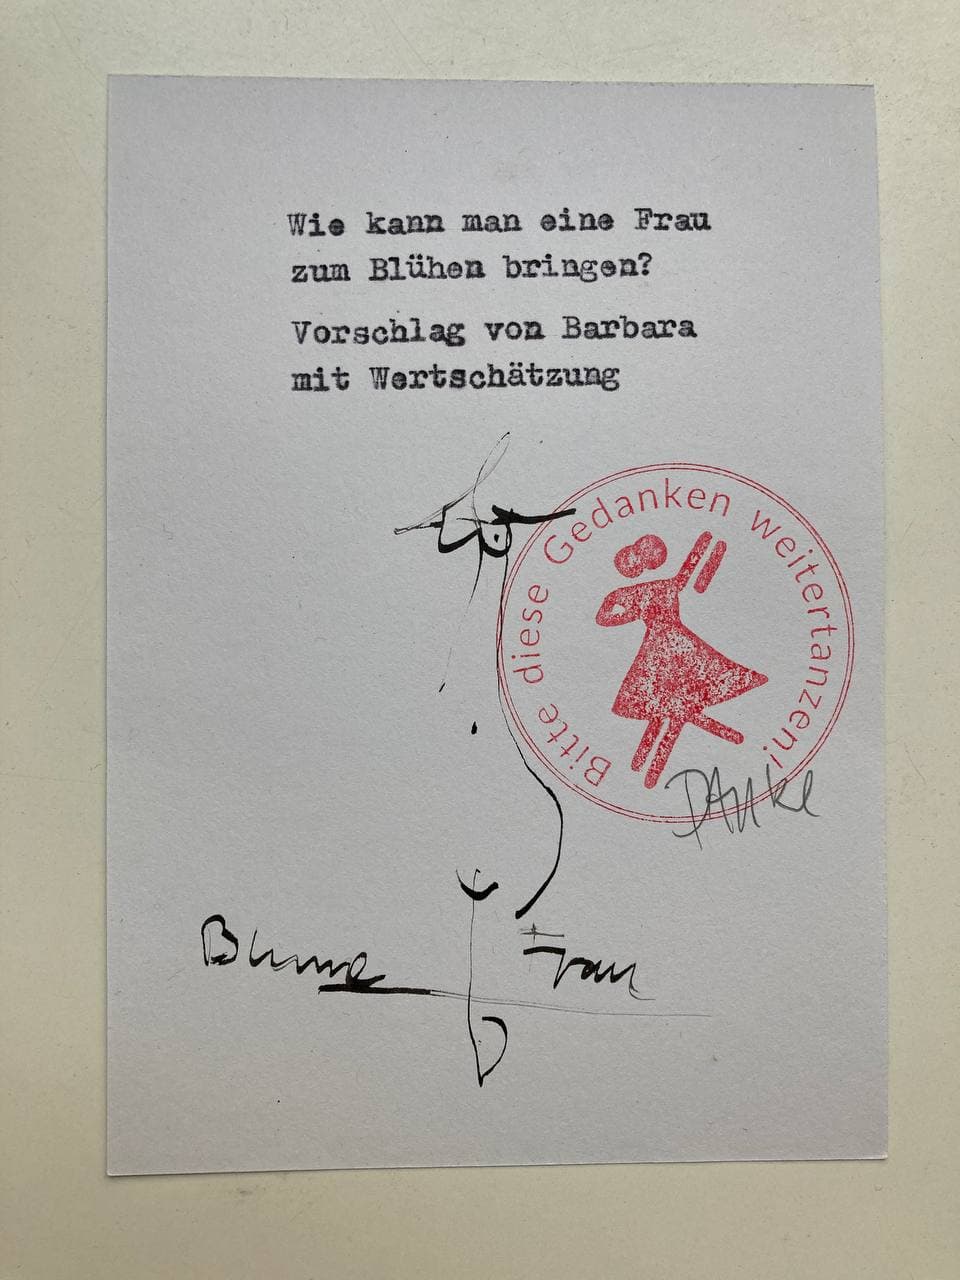 Wie kann man eine Frau
zum Blühen bringen?
Vorschlag von Barbara
mit Wertschätzung
Bitte diese Gedanken weitertanzen!
DANKE
Blume Frau